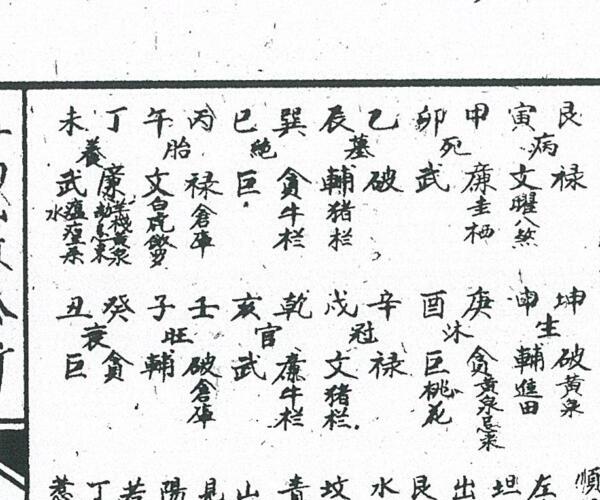 艮禄
病
寅文曜八煞
甲廉圭栖
死
卯武
乙破
墓
辰輔猪栏
巽貪牛栏
絕
巳巨
丙禄倉庫
胎
午文白虎
丁廉黃泉
養
未武水
坤破黃泉
生
申輔進田
庚貪黃泉忌來
沐
酉巨桃花
辛禄
冠
戌文猪栏
乾廉牛栏
官
亥武
壬破倉庫
旺
子輔
癸貪
衰
丑巨
順
左
坦
出
艮
水
坟
青
山
見
陽
若
丁
惹